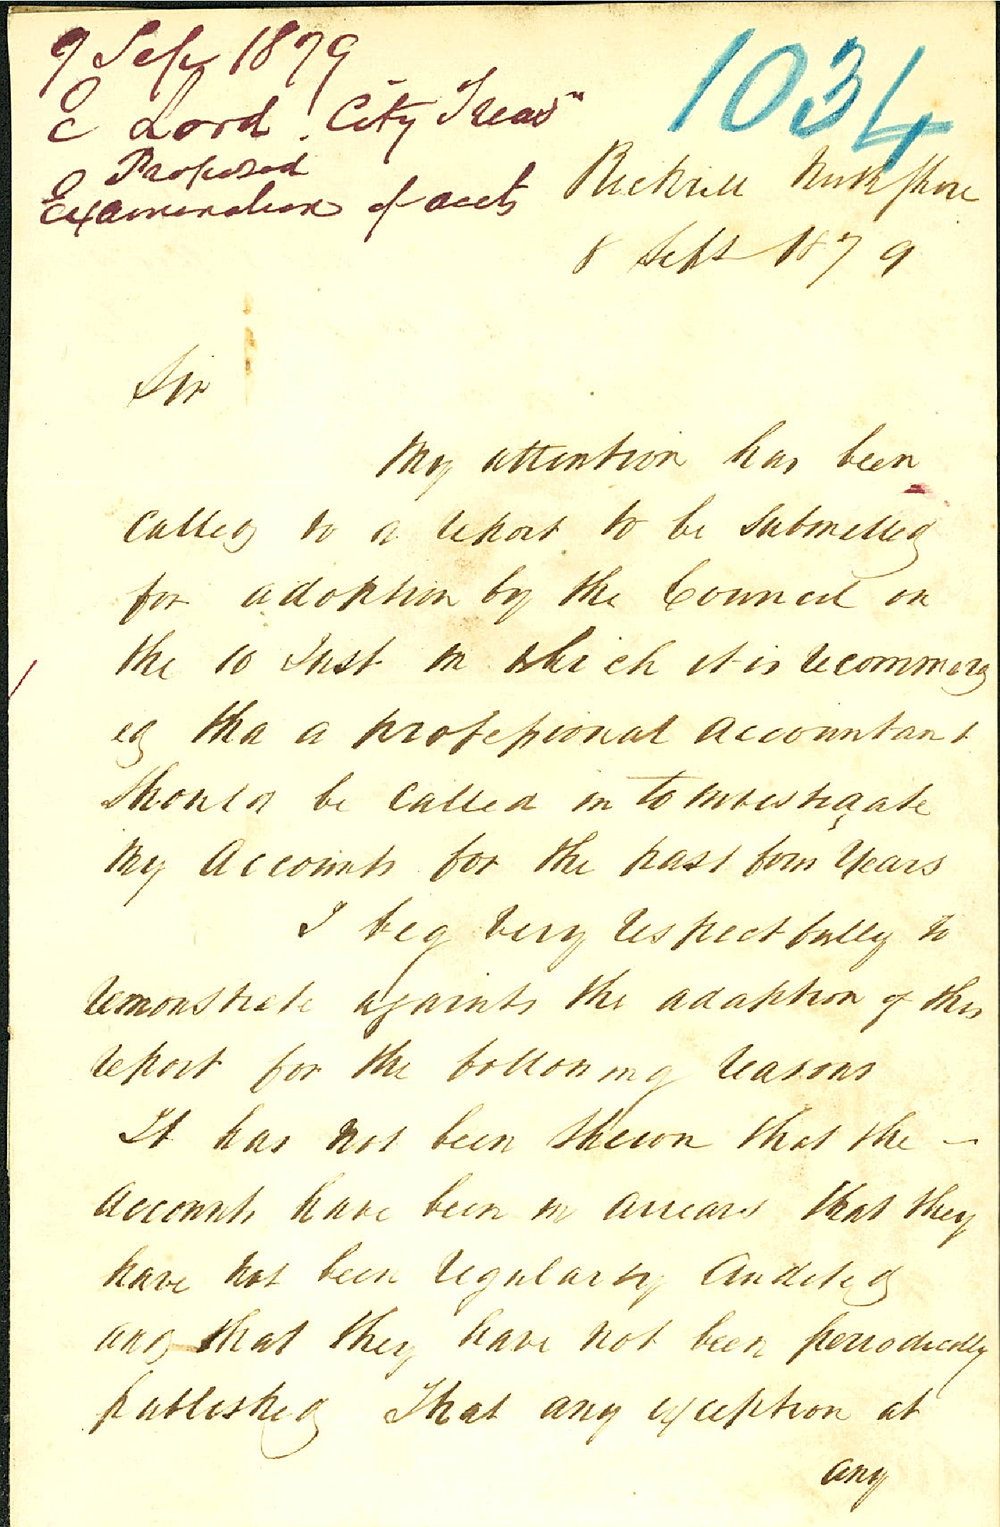 9 Sep 1879
C Lord City Treasr
Proposed
Examination of accts
1034
North Shore
8 Sept 1879
Sir
My attention has been
called to a report to be submitted
for adoption by the Council on
the 10 Inst in which it is recommend
ed tha a professional accountant
should be called in to investigate
my Accounts for the past four Years
I beg very respectfully to
remonstrate againts the adoption of this
report for the following reasons
It has not been shewn that the —
accounts have been in arrears that they
have not been regularly Audited
and that they have not been periodically
published That any exception at
any